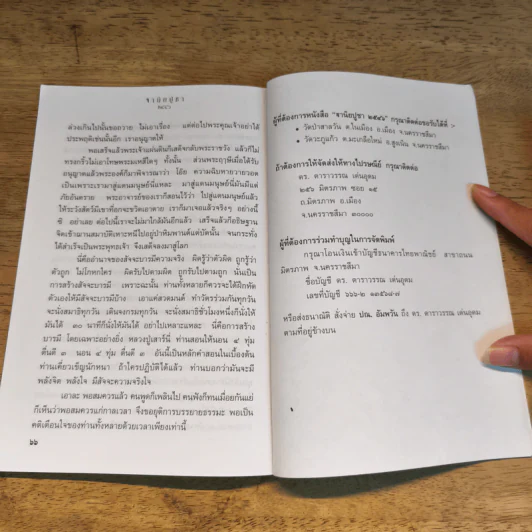 ฐานิยปูชา
๒๕๔๖
ล่วงเกินไปนั้นขอถวาย ไม่เอาเรื่อง แต่ต่อไปพระคุณเจ้าอย่าได้
ประพฤติเช่นนั้นอีก เราอนุญาตให้
พอเสร็จแล้วพระเจ้าแผ่นดินก็เสด็จกลับพระราชวัง แล้วก็ไม่
ทรงกริ้วไม่เอาโทษพระมเหสีใดๆ ทั้งนั้น ส่วนพระฤาษีเมื่อได้รับ
อนุญาตแล้วพระองค์ก็มาพิจารณาว่า โอ้ย ความฉิบหายวายวอด
เป็นเพราะเรามาสู่แดนมนุษย์นี่แหละ มาสู่แดนมนุษย์นี่มันมีแต่
ภัยอันตราย พระอาจารย์ของเราก็สอนไว้ว่า ไปสู่แดนมนุษย์แล้ว
ให้ระวังสัตว์มีเขาที่อกจะขวิดเอาตาย เราก็มาเจอแล้วจริงๆ อย่างนี้
ซิ อย่าเลย ต่อไปนี้เราจะไม่มาใกล้มันอีกแล้ว เสร็จแล้วก็อธิษฐาน
จิตเข้าฌานสมาบัติเหาะหนีไปอยู่ป่าหิมพานต์แต่บัดนั้น จนกระทั่ง
ได้สำเร็จเป็นพระพุทธเจ้า จึงเสด็จลงมาสู่โลก
นี่คืออำนาจของสัจจะบารมีความจริง ผิดรู้ว่าตัวผิด ถูกรู้ว่า
ตัวถูก ไม่โกหกใคร ผิดรับไปตามผิด ถูกรับไปตามถูก นั่นเป็น
การสร้างสัจจะบารมี เพราะฉะนั้น ท่านทั้งหลายก็ควรจะได้ฝึกหัด
ตัวเองให้มีสัจจะบารมีบ้าง เอาแค่สวดมนต์ ทำวัตรร่วมกันทุกวัน
จะนั่งสมาธิทุกวัน เดินจงกรมทุกวัน จะนั่งสมาธิชั่วโมงหนึ่งก็นั่งให้
มันได้ ๓๐ นาทีก็นั่งให้มันได้ อย่าไปเหลาะแหละ นี่คือการสร้าง
บารมี โดยเฉพาะอย่างยิ่ง หลวงปู่เสาร์นี่ ท่านสอนให้นอน ๔ ทุ่ม
ตื่นตี ๓ นอน ๔ ทุ่ม ตื่นตี ๓ อันนี้เป็นหลักคำสอนในเบื้องต้น
ท่านเคี่ยวเข็ญนักหนา ถ้าใครปฏิบัติได้แล้ว ท่านบอกว่ามันจะมี
พลังจิต พลังใจ มีสัจจะความจริงใจ
เอาละ พอสมควรแล้ว คนพูดก็เพลินไป คนฟังก็ทนเมื่อยกันแย่
ก็เห็นว่าพอสมควรแก่กาลเวลา จึงขอยุติการบรรยายธรรมะ พอเป็น
คติเตือนใจของท่านทั้งหลายด้วยเวลาเพียงเท่านี้
๖๖
ผู้ที่ต้องการหนังสือ "ฐานิยปูชา ๒๕๔๖" กรุณาติดต่อขอรับได้ที่ >
• วัดป่าสาลวัน ต.ในเมือง อ.เมือง จ.นครราชสีมา
• วัดวะภูแก้ว ต.มะเกลือใหม่ อ.สูงเนิน จ.นครราชสีมา
ถ้าต้องการให้จัดส่งให้ทางไปรษณีย์ กรุณาติดต่อ
ดร. ดาราวรรณ เด่นอุดม
๒๕๖ มิตรภาพ ซอย ๑๕
ถ.มิตรภาพ อ.เมือง
จ.นครราชสีมา ๓๐๐๐๐
ผู้ที่ต้องการร่วมทำบุญในการจัดพิมพ์
กรุณาโอนเงินเข้าบัญชีธนาคารไทยพาณิชย์ สาขาถนน
มิตรภาพ จ.นครราชสีมา
ชื่อบัญชี ดร. ดาราวรรณ เด่นอุดม
เลขที่บัญชี
หรือส่งธนาณัติ สั่งจ่าย ปณ. อัมพวัน ถึง ดร. ดาราวรรณ เด่นอุดม
ตามที่อยู่ข้างบน